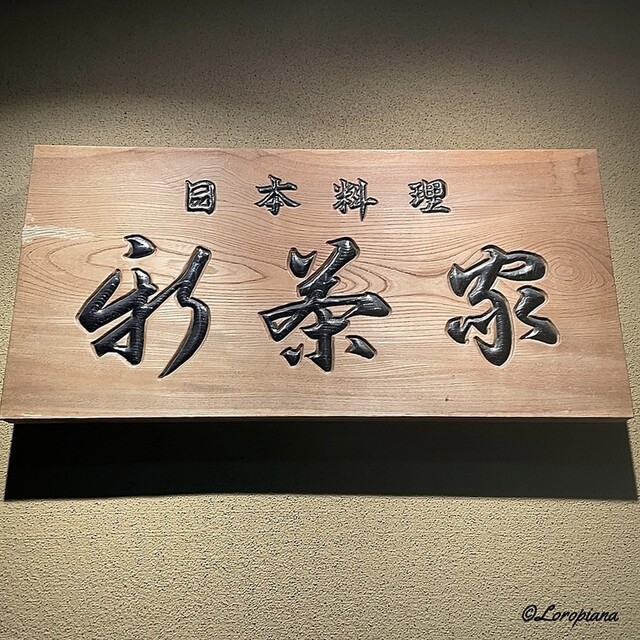 日本料理
新茶家
©Loropiana